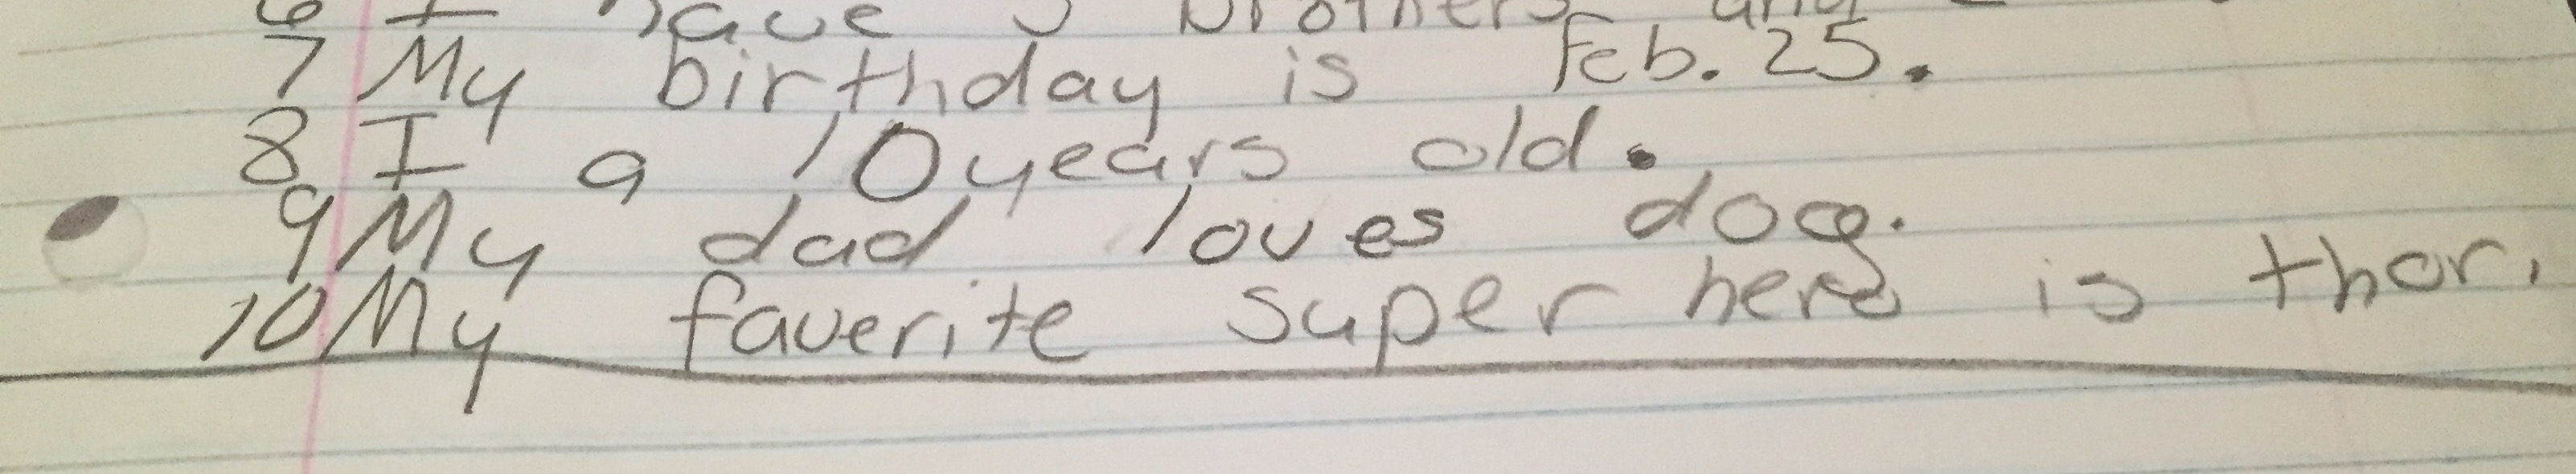 6 I have 3 brothers and
7 My birthday is Feb. 25.
8 I a 10 years old.
9 My dad loves dog.
10 My faverite super hero is thor.